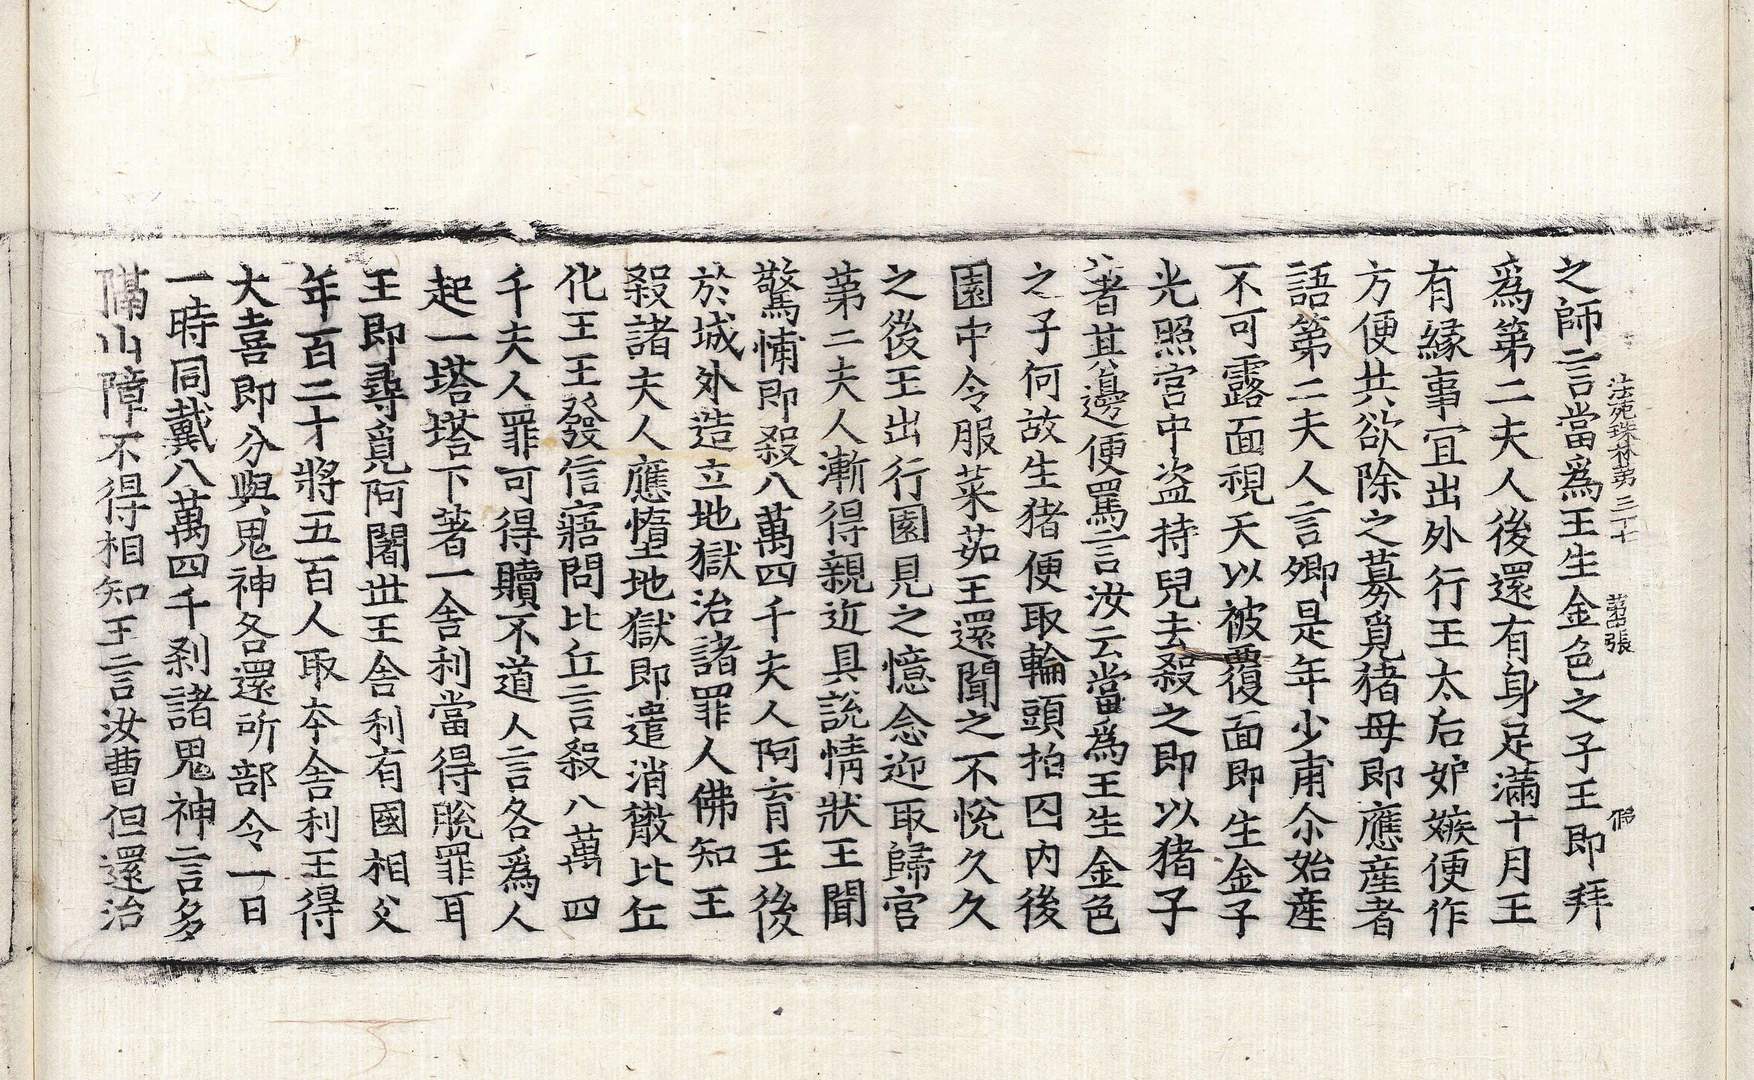 法苑珠林第三十七　第四張　俻
之師言當為王生金色之子王即拜
為第二夫人後還有身足滿十月王
有緣事宜出外行王太后妒嫉便作
方便共欲除之募覓猪母即應産者
語第二夫人言卿是年少甫尒始産
不可露面視天以被覆面即生金子
光照宮中盜持兒去殺之即以猪子
著其邊便罵言汝云當為王生金色
之子何故生猪便取輪頭拍囚內後
園中令服菜茹王還聞之不悅久久
之後王出行園見之憶念迎取歸宮
第二夫人漸得親近具說情狀王聞
驚愽即殺八萬四千夫人阿育王後
於城外造立地獄治諸罪人佛知王
殺諸夫人應墮地獄即遣消散比丘
化王王發信寤問比丘言殺八萬四
千夫人罪可得贖不道人言各為人
起一塔塔下著一舍利當得脫罪耳
王即尋覓阿闍世王舍利有國相父
年百二才將五百人取夲舍利王得
大喜即分與鬼神各還所部令一日
一時同戴八萬四千刹諸鬼神言多
隔山障不得相知王言汝曹但還治